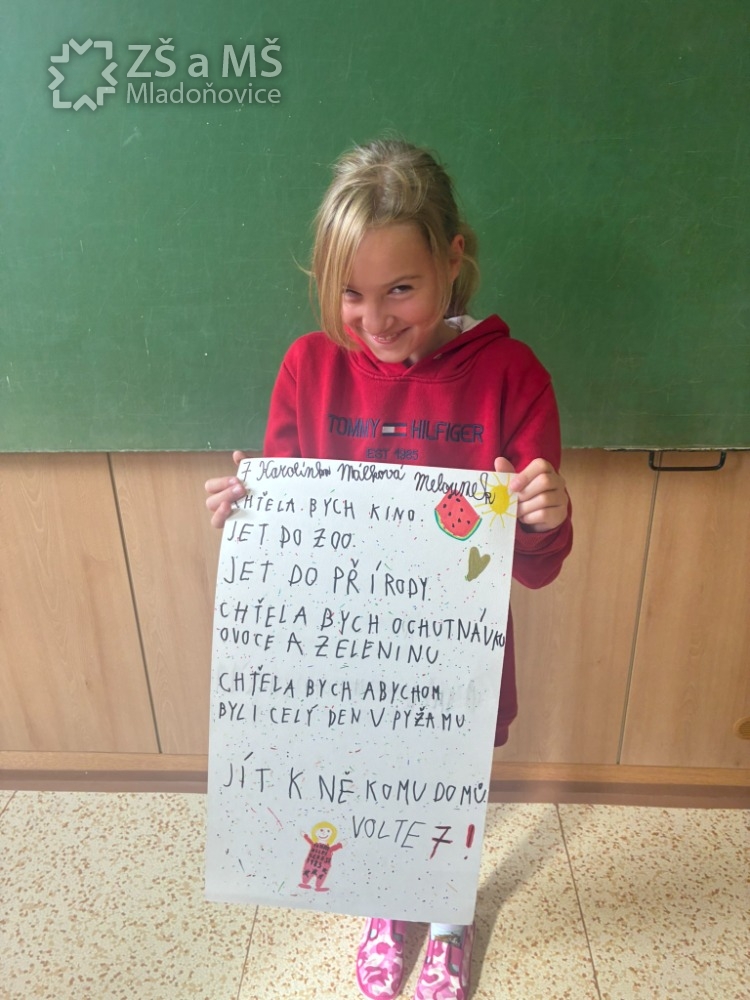 ZŠ a MŠ
Mladoňovice
TOMMY HILFIGER
EST 1985
7 Karolínka Málková Melounek
CHTĚLA BÝCH KINO.
JET DO ZOO.
JET DO PŘÍRODY.
CHTĚLA BÝCH OCHUTNÁVKU
OVOCE A ZELENINU
CHTĚLA BÝCH ABYCHOM
BYLI CELÝ DEN V PYŽAMU
JÍT K NĚKOMU DOMŮ.
VOLTE 7!